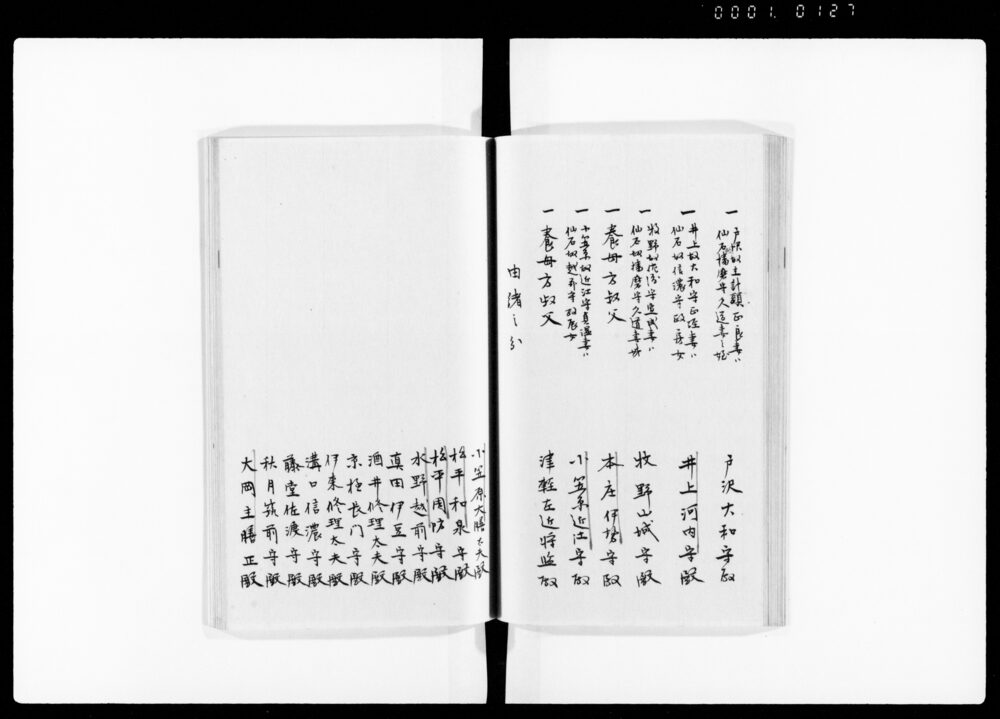 0001. 0127
一 戸沢故主計頭正良妻ハ
仙石播磨守久道妻之姪
戸沢大和守殿
一 井上故大和守正経妻ハ
仙石故信濃守政房女
井上河内守殿
一 牧野故 守宣成妻ハ
仙石故播磨守久道妻妹
牧野山城守殿
一 養母方叔父
本庄伊勢守殿
一 小笠原故近江守貞温妻ハ
仙石故越前守政辰女
小笠原近江守殿
一 養母方叔父
津軽左近将監殿
由緒之分
小笠原大膳太夫殿
松平和泉守殿
松平周防守殿
水野越前守殿
真田伊豆守殿
酒井修理太夫殿
京極長門守殿
伊東修理太夫殿
溝口信濃守殿
藤堂佐渡守殿
秋月筑前守殿
大岡主膳正殿